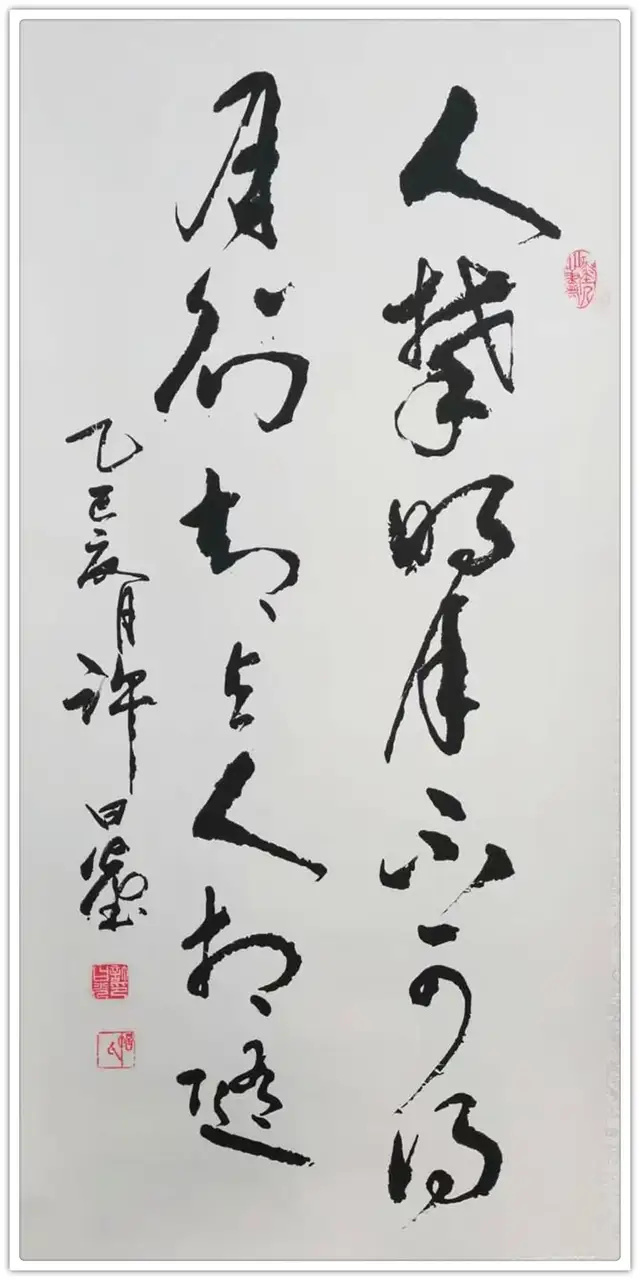 人攀明月不可得
月行却与人相随
乙巳亥月许